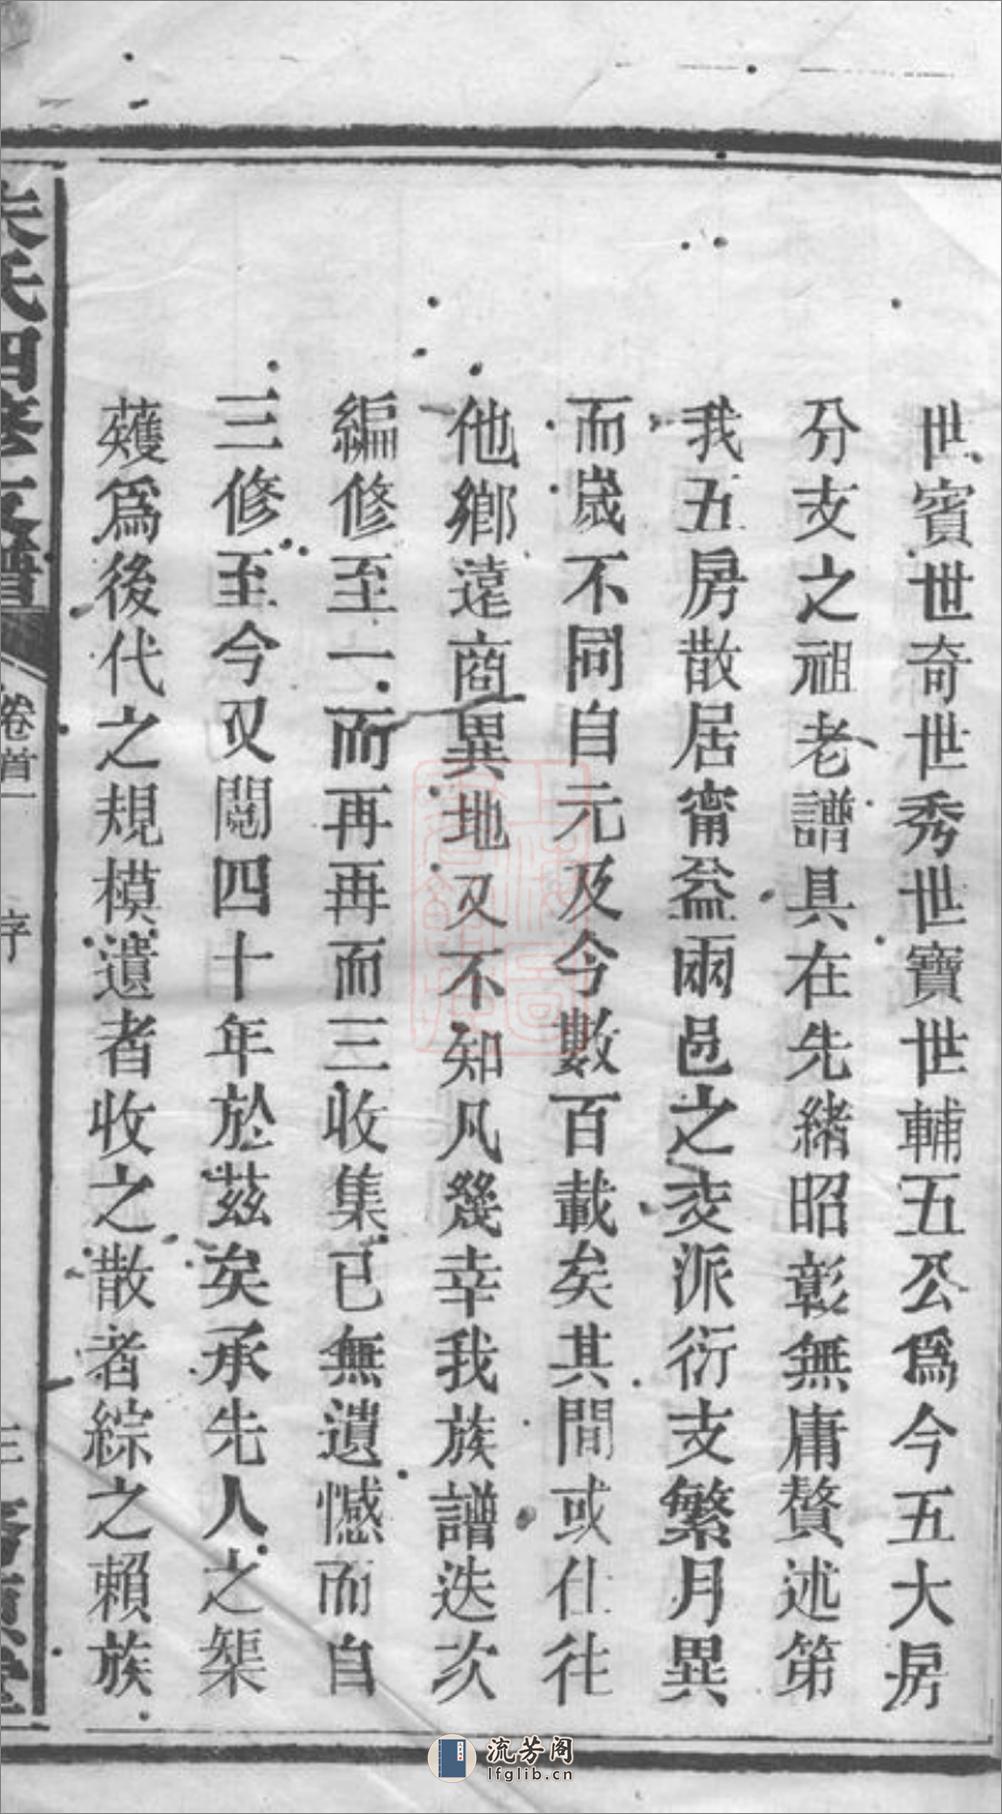 世賓世奇世秀世寶世輔五公爲今五大房
分支之祖老譜具在先緒昭彰無庸贅述第
我五房散居甯益兩邑之交派衍支繁月異
而歲不同自元及今數百載矣其間或仕往
他鄉遠商異地又不知凡幾幸我族譜迭次
編修至一而再再而三收集已無遺憾而自
三修至今又閱四十年於茲矣承先人之榘
蒦爲後代之規模遺者收之散者綜之賴族
氏四修五譜
卷首一
序
三
流芳阁
lfglib.cn